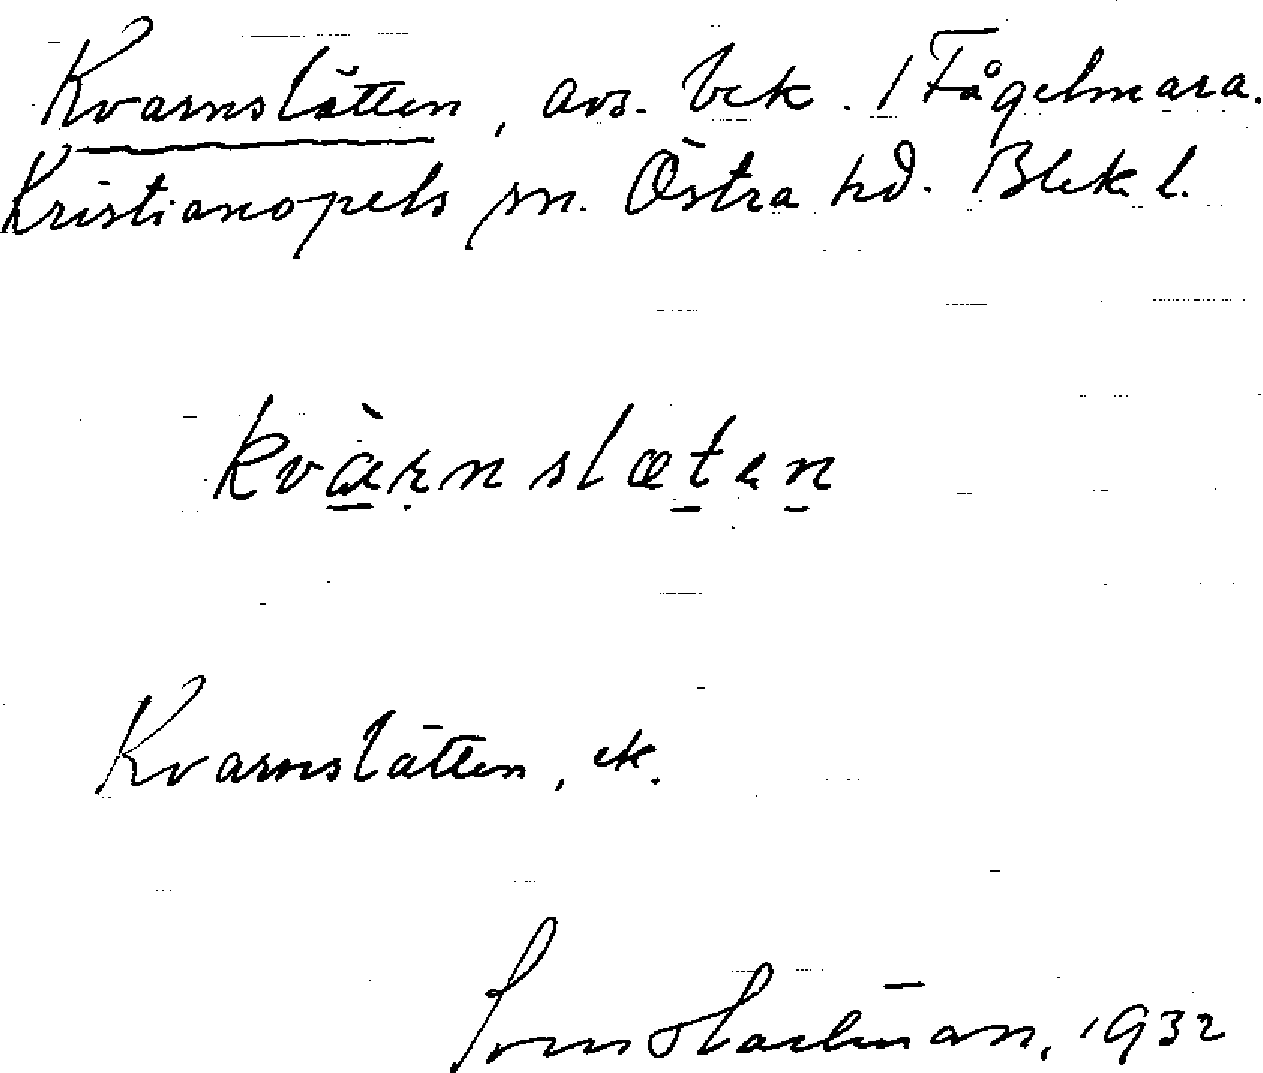 Kvarnslätten, avs. bek. 1 Fågelmara.
Kristianopels sn. Östra hd. Blek. l.
kvàrnslæten
Kvarnslätten, ek.
1932